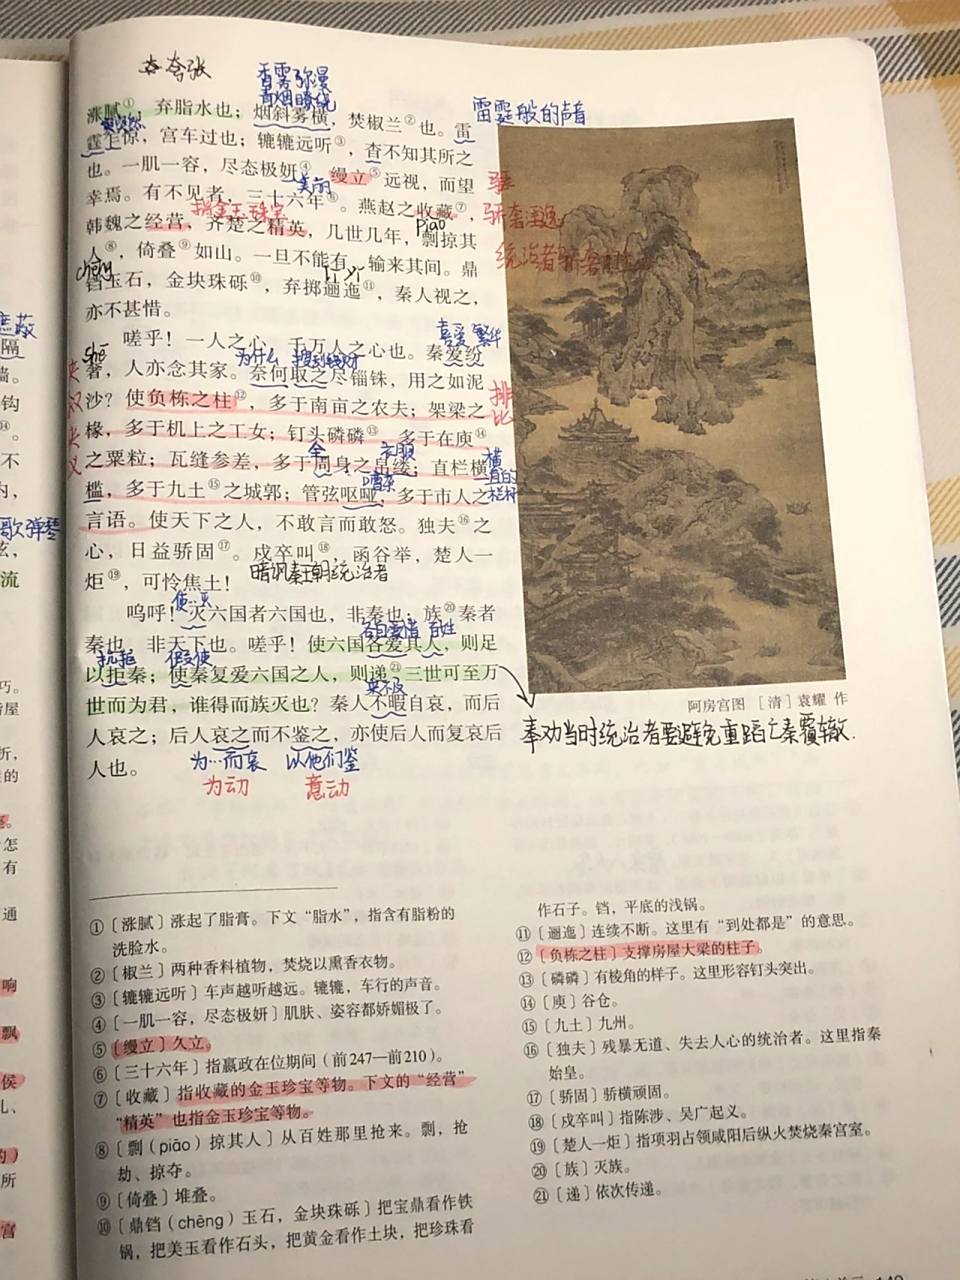 夸张
香雾弥漫
青烟缭绕
雷霆般的声音
涨腻①，弃脂水也；烟斜雾横，焚椒兰②也。雷
霆乍惊，宫车过也；辘辘远听③，杳不知其所之
也。一肌一容，尽态极妍④，缦立⑤远视，而望
美丽
幸焉。有不见者，三十六年⑥。燕赵之收藏⑦，
骄奢淫逸
指金玉珠宝
piāo
韩魏之经营，齐楚之精英，几世几年，剽掠其
人⑧，倚叠⑨如山。一旦不能有，输来其间。鼎
chēng
lǐ yǐ
铛玉石，金块珠砾⑩，弃掷逦迤⑪，秦人视之，
亦不甚惜。
喜爱 繁华
嗟乎！一人之心，千万人之心也。秦爱纷
shē
为什么
奢，人亦念其家。奈何取之尽锱铢，用之如泥
排比
沙？使负栋之柱⑫，多于南亩之农夫；架梁之
椽，多于机上之工女；钉头磷磷⑬，多于在庾⑭
全
衣服
之粟粒；瓦缝参差，多于周身之帛缕；直栏横
嘈杂
槛，多于九土⑮之城郭；管弦呕哑，多于市人之
言语。使天下之人，不敢言而敢怒。独夫⑯之
心，日益骄固⑰。戍卒叫⑱，函谷举，楚人一
炬⑲，可怜焦土！
暗讽秦王朝统治者
呜呼！灭六国者六国也，非秦也；族⑳秦者
百姓
秦也，非天下也。嗟乎！使六国各爱其人，则足
抗拒
假使
以拒秦；使秦复爱六国之人，则递㉑三世可至万
来不及
世而为君，谁得而族灭也？秦人不暇自哀，而后
人哀之；后人哀之而不鉴之，亦使后人而复哀后
人也。
为…而哀
以他们鉴
为动
意动
阿房宫图 ［清］袁耀 作
奉劝当时统治者要避免重蹈亡秦覆辙．
①〔涨腻〕涨起了脂膏。下文“脂水”，指含有脂粉的
洗脸水。
②〔椒兰〕两种香料植物，焚烧以熏香衣物。
③〔辘辘远听〕车声越听越远。辘辘，车行的声音。
④〔一肌一容，尽态极妍〕肌肤、姿容都娇媚极了。
⑤〔缦立〕久立。
⑥〔三十六年〕指嬴政在位期间（前247—前210）。
⑦〔收藏〕指收藏的金玉珍宝等物。下文的“经营”
“精英”也指金玉珍宝等物。
⑧〔剽（piāo）掠其人〕从百姓那里抢来。剽，抢
劫、掠夺。
⑨〔倚叠〕堆叠。
⑩〔鼎铛（chēng）玉石，金块珠砾〕把宝鼎看作铁
锅，把美玉看作石头，把黄金看作土块，把珍珠看
作石子。铛，平底的浅锅。
⑪〔逦迤〕连续不断。这里有“到处都是”的意思。
⑫〔负栋之柱〕支撑房屋大梁的柱子。
⑬〔磷磷〕有棱角的样子。这里形容钉头突出。
⑭〔庾〕谷仓。
⑮〔九土〕九州。
⑯〔独夫〕残暴无道、失去人心的统治者。这里指秦
始皇。
⑰〔骄固〕骄横顽固。
⑱〔戍卒叫〕指陈涉、吴广起义。
⑲〔楚人一炬〕指项羽占领咸阳后纵火焚烧秦宫室。
⑳〔族〕灭族。
㉑〔递〕依次传递。